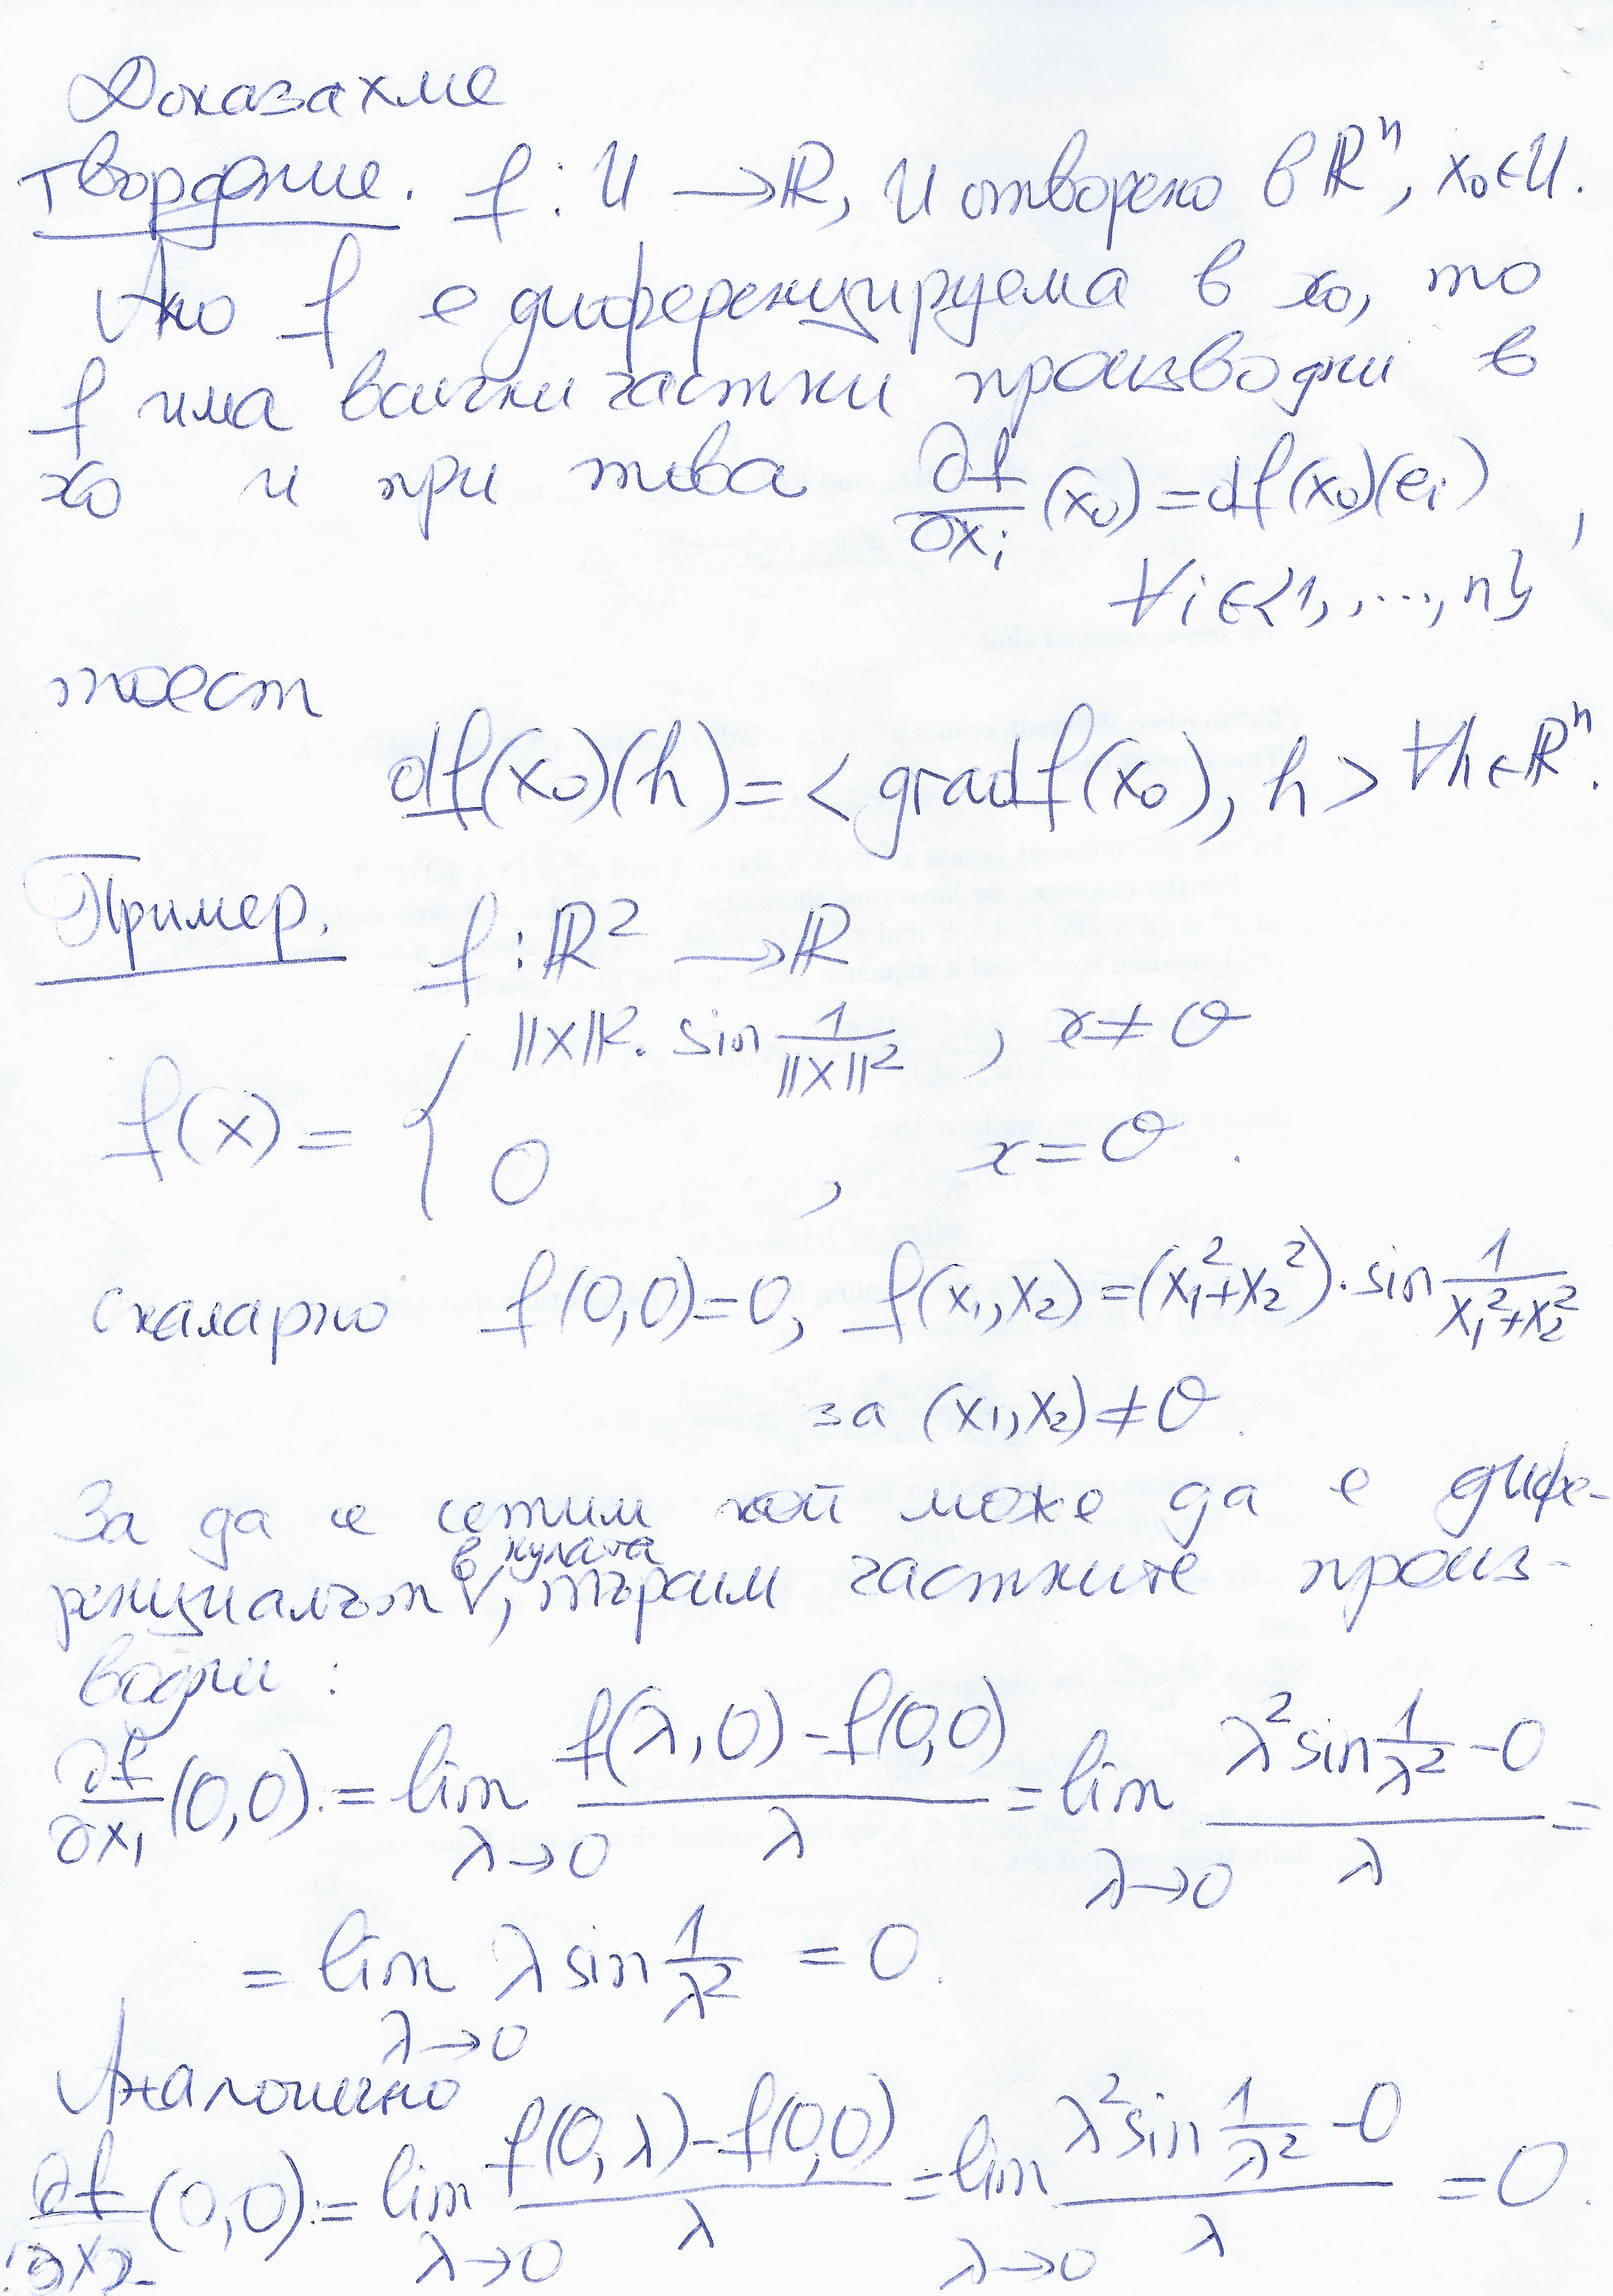 Доказахме
Твърдение. f : U → ℝ, U отворено в ℝⁿ, x₀ ∈ U.
Ако f е диференцируема в x₀, то
f има всички частни производни в
x₀ и при това ∂f/∂xᵢ (x₀) = df(x₀)(eᵢ),
∀i ∈ {1, ..., n}
тоест
df(x₀)(h) = < grad f(x₀), h > ∀h ∈ ℝⁿ.
Пример. f : ℝ² → ℝ
f(x) = { ||x||². sin 1/||x||² , x ≠ 0
0 , x = 0.
скаларно f(0,0)=0, f(x₁,x₂) = (x₁²+x₂²). sin 1/(x₁²+x₂²)
за (x₁,x₂) ≠ 0.
За да се сетим кой може да е дифе-
ренциалът в нулата, търсим частните произ-
водни :
∂f/∂x₁ (0,0) = lim_{λ→0} (f(λ,0) - f(0,0))/λ = lim_{λ→0} (λ² sin 1/λ² - 0)/λ =
= lim_{λ→0} λ sin 1/λ² = 0.
Аналогично
∂f/∂x₂ (0,0) = lim_{λ→0} (f(0,λ) - f(0,0))/λ = lim_{λ→0} (λ² sin 1/λ² - 0)/λ = 0.